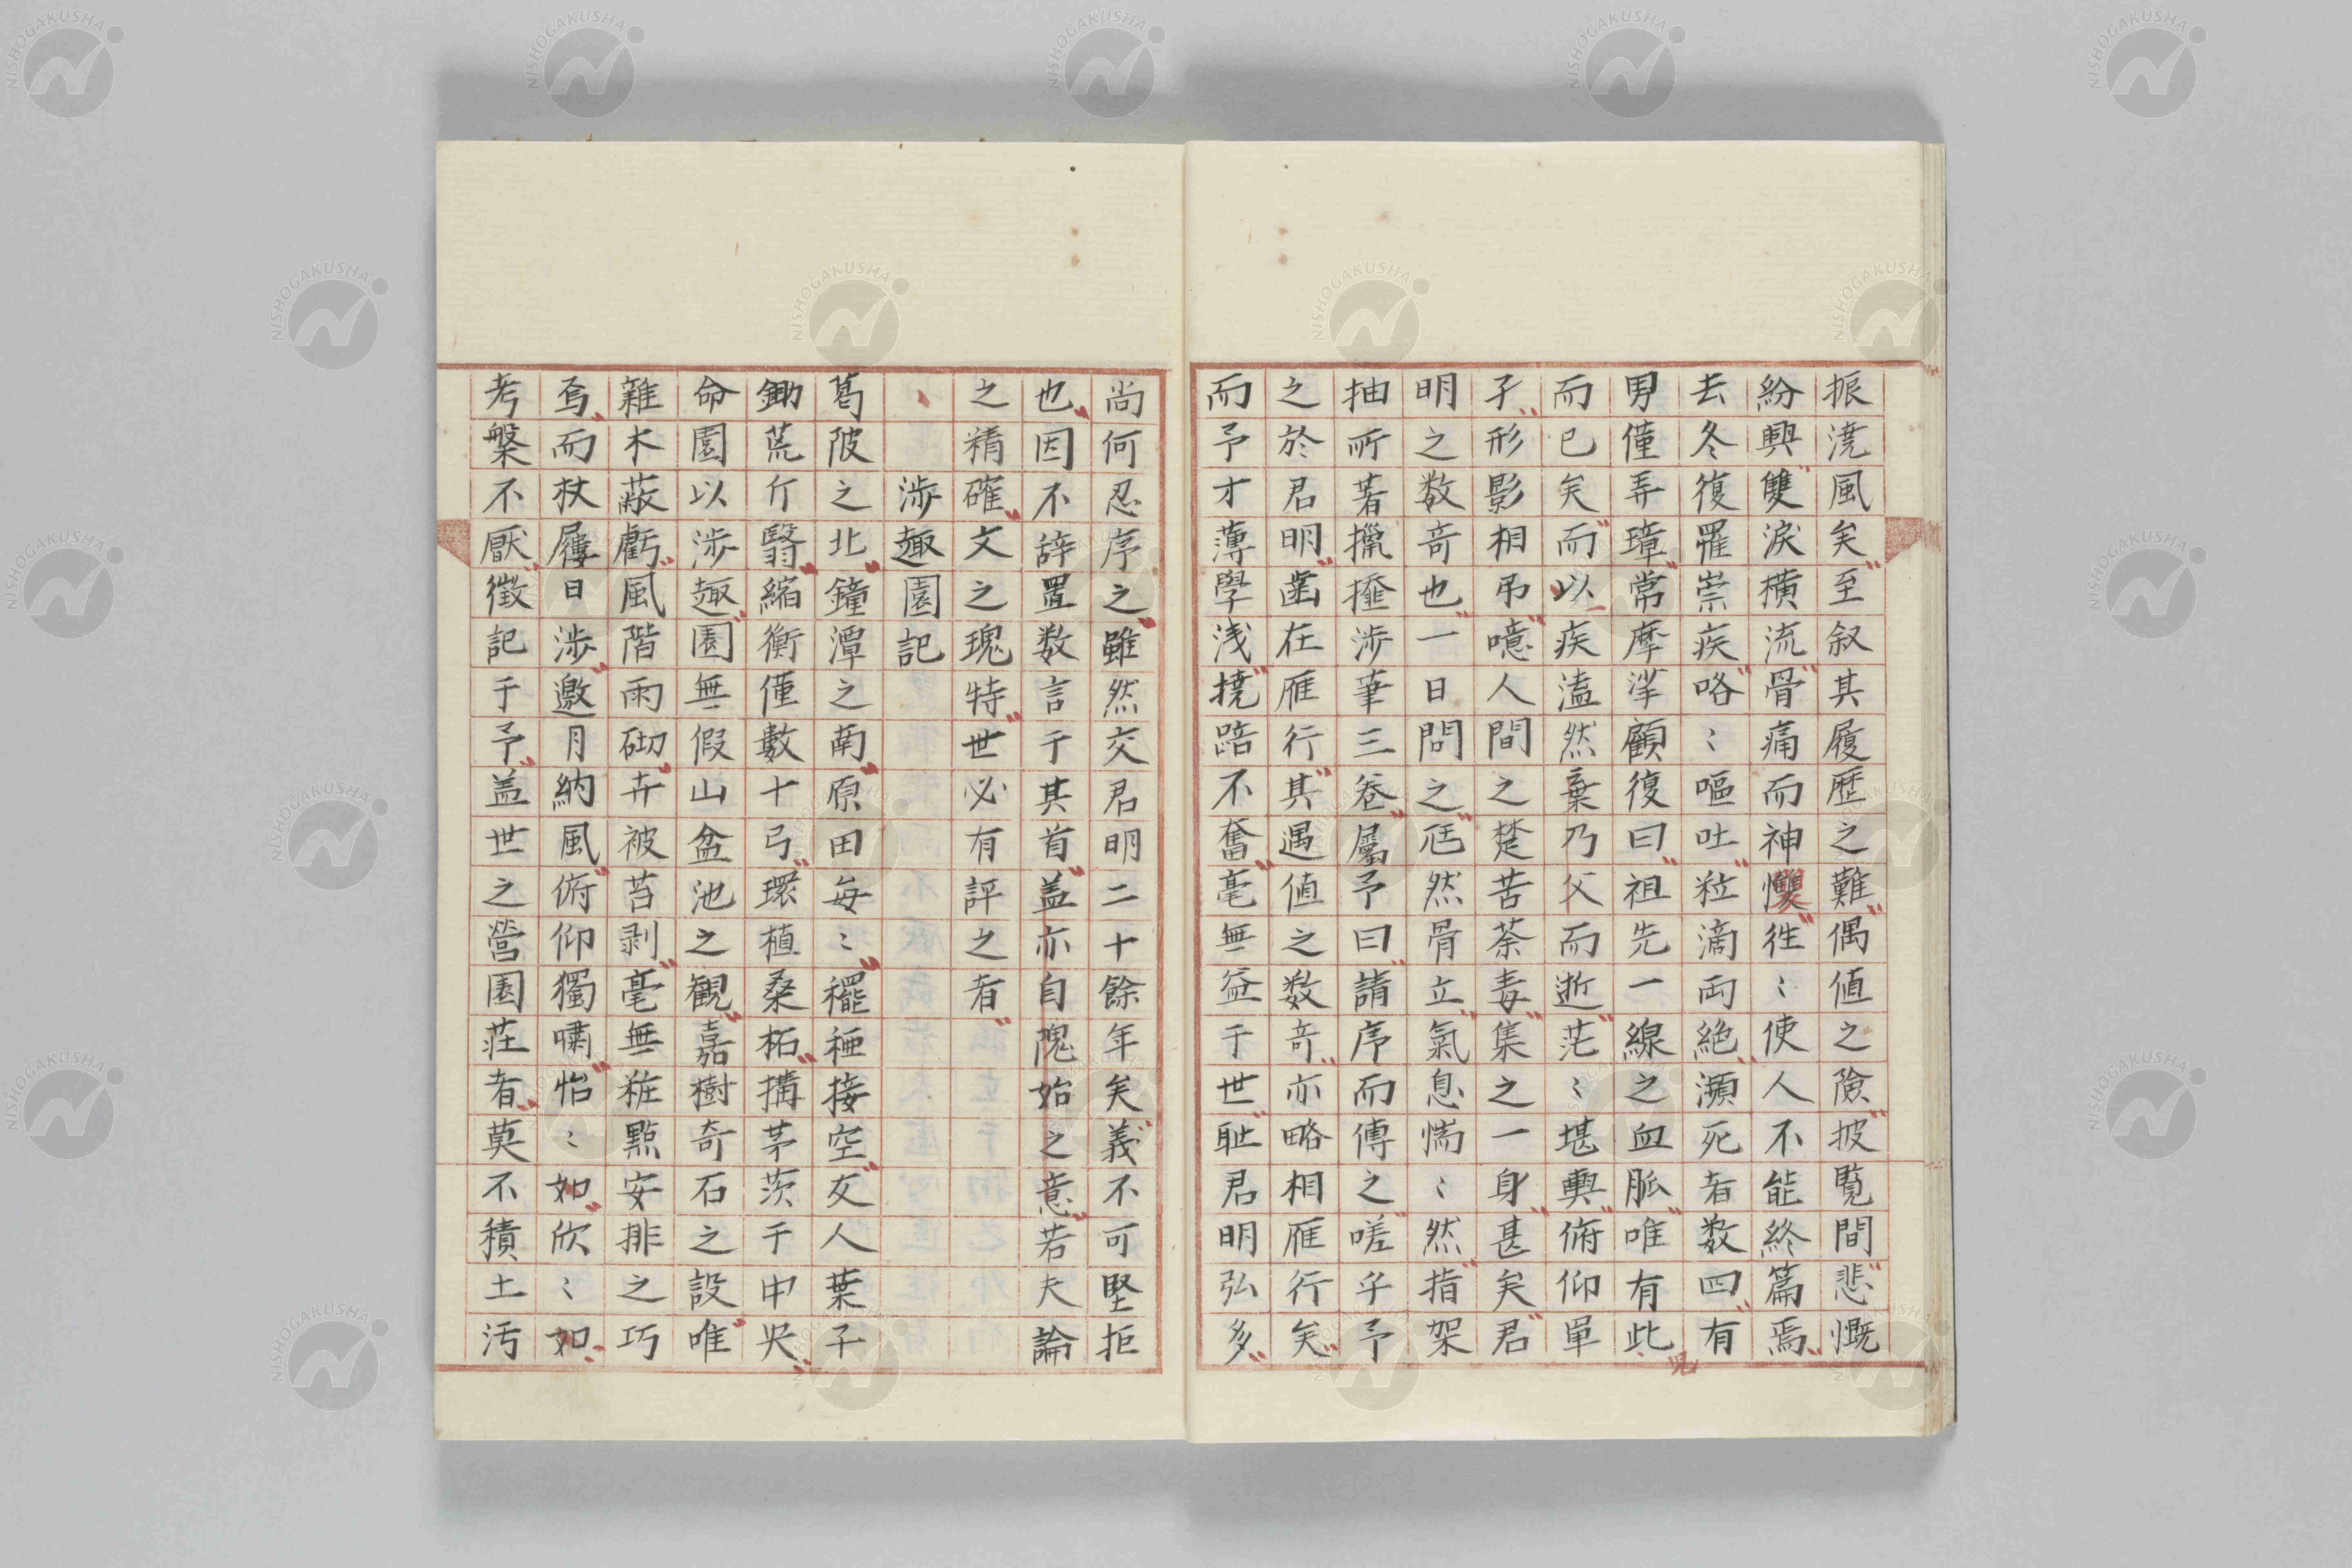 振澆風矣至叙其履歴之難偶値之險披覧間悲慨
紛興雙涙横流骨痛而神戄徃〻使人不能終篇焉
去冬復罹崇疾咯〻嘔吐粒滴両絶瀕死者数四有
男僅弄璋常摩挲顧復曰祖先一線之血脈唯有此
児
而已矣而以疾溘然棄乃父而逝茫〻堪輿俯仰單
孑形影相弔噫人間之楚苦荼毒集之一身甚矣君
明之数奇也一日問之尫然骨立氣息惴〻然指架
抽所著擸㩉涉筆三卷屬予曰請序而傳之嗟乎予
之於君明齒在雁行其遇値之数奇亦略相雁行矣
而予才薄學浅撓踣不奮毫無益于世耻君明弘多
尚何忍序之雖然交君明二十餘年矣義不可堅拒
也因不辞置数言于其首盖亦自隗始之意若夫論
之精確文之瑰特世必有評之者
涉趣園記
葛陂之北鐘潭之南原田每〻䆉稏接空友人葉子
鋤荒斤翳縮衡僅數十弓環植桑柘搆茅茨于中央
命園以涉趣園無假山盆池之観嘉樹奇石之設唯
雜木蔽虧風階雨砌卉被苔剥毫無粧點安排之巧
焉而杖屨日涉邀月納風俯仰獨嘯怡〻如欣〻如
考槃不厭徵記于予盖世之營園荘者莫不積土汚
NISHOGAKUSHA